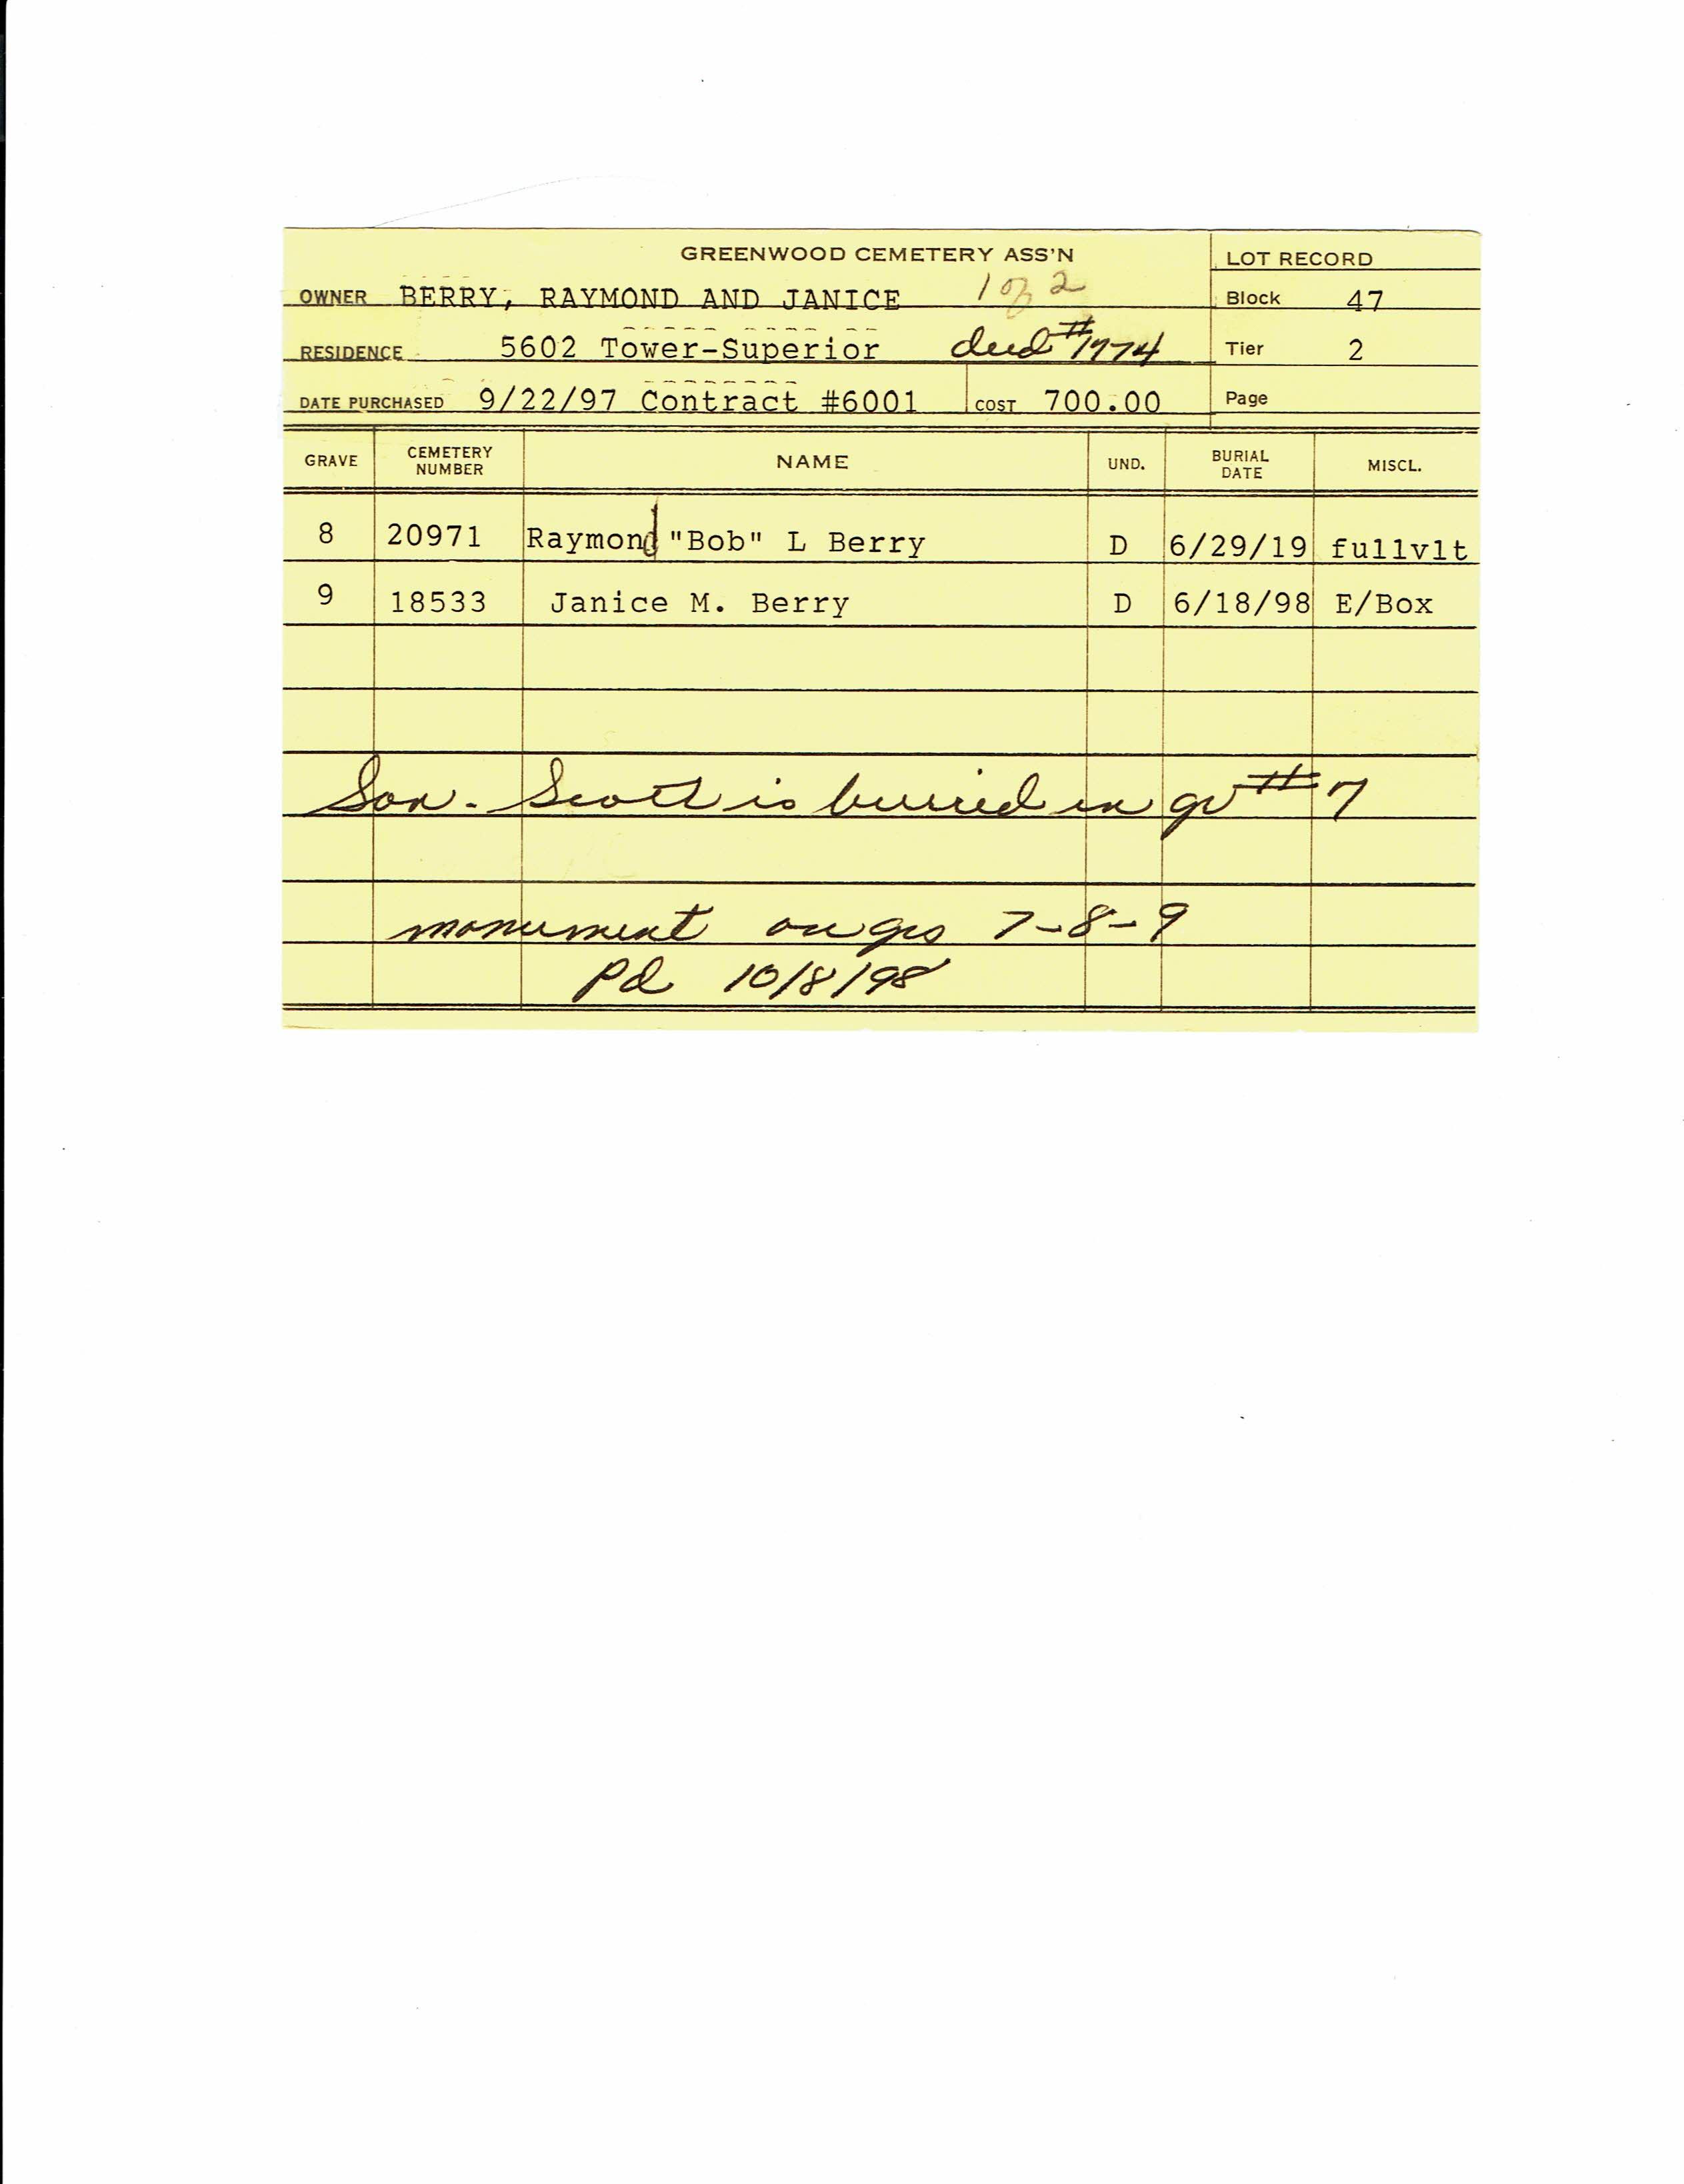 GREENWOOD CEMETERY ASS'N
LOT RECORD
OWNER BERRY, RAYMOND AND JANICE 1 of 2
Block 47
RESIDENCE 5602 Tower-Superior deed #1774
Tier 2
DATE PURCHASED 9/22/97 Contract #6001 COST 700.00
Page
GRAVE CEMETERY NUMBER NAME UND. BURIAL DATE MISCL.
8 20971 Raymond "Bob" L Berry D 6/29/19 fullvlt
9 18533 Janice M. Berry D 6/18/98 E/Box
Son - Scott is buried in gr #7
monument on grs 7-8-9
Pd 10/8/98